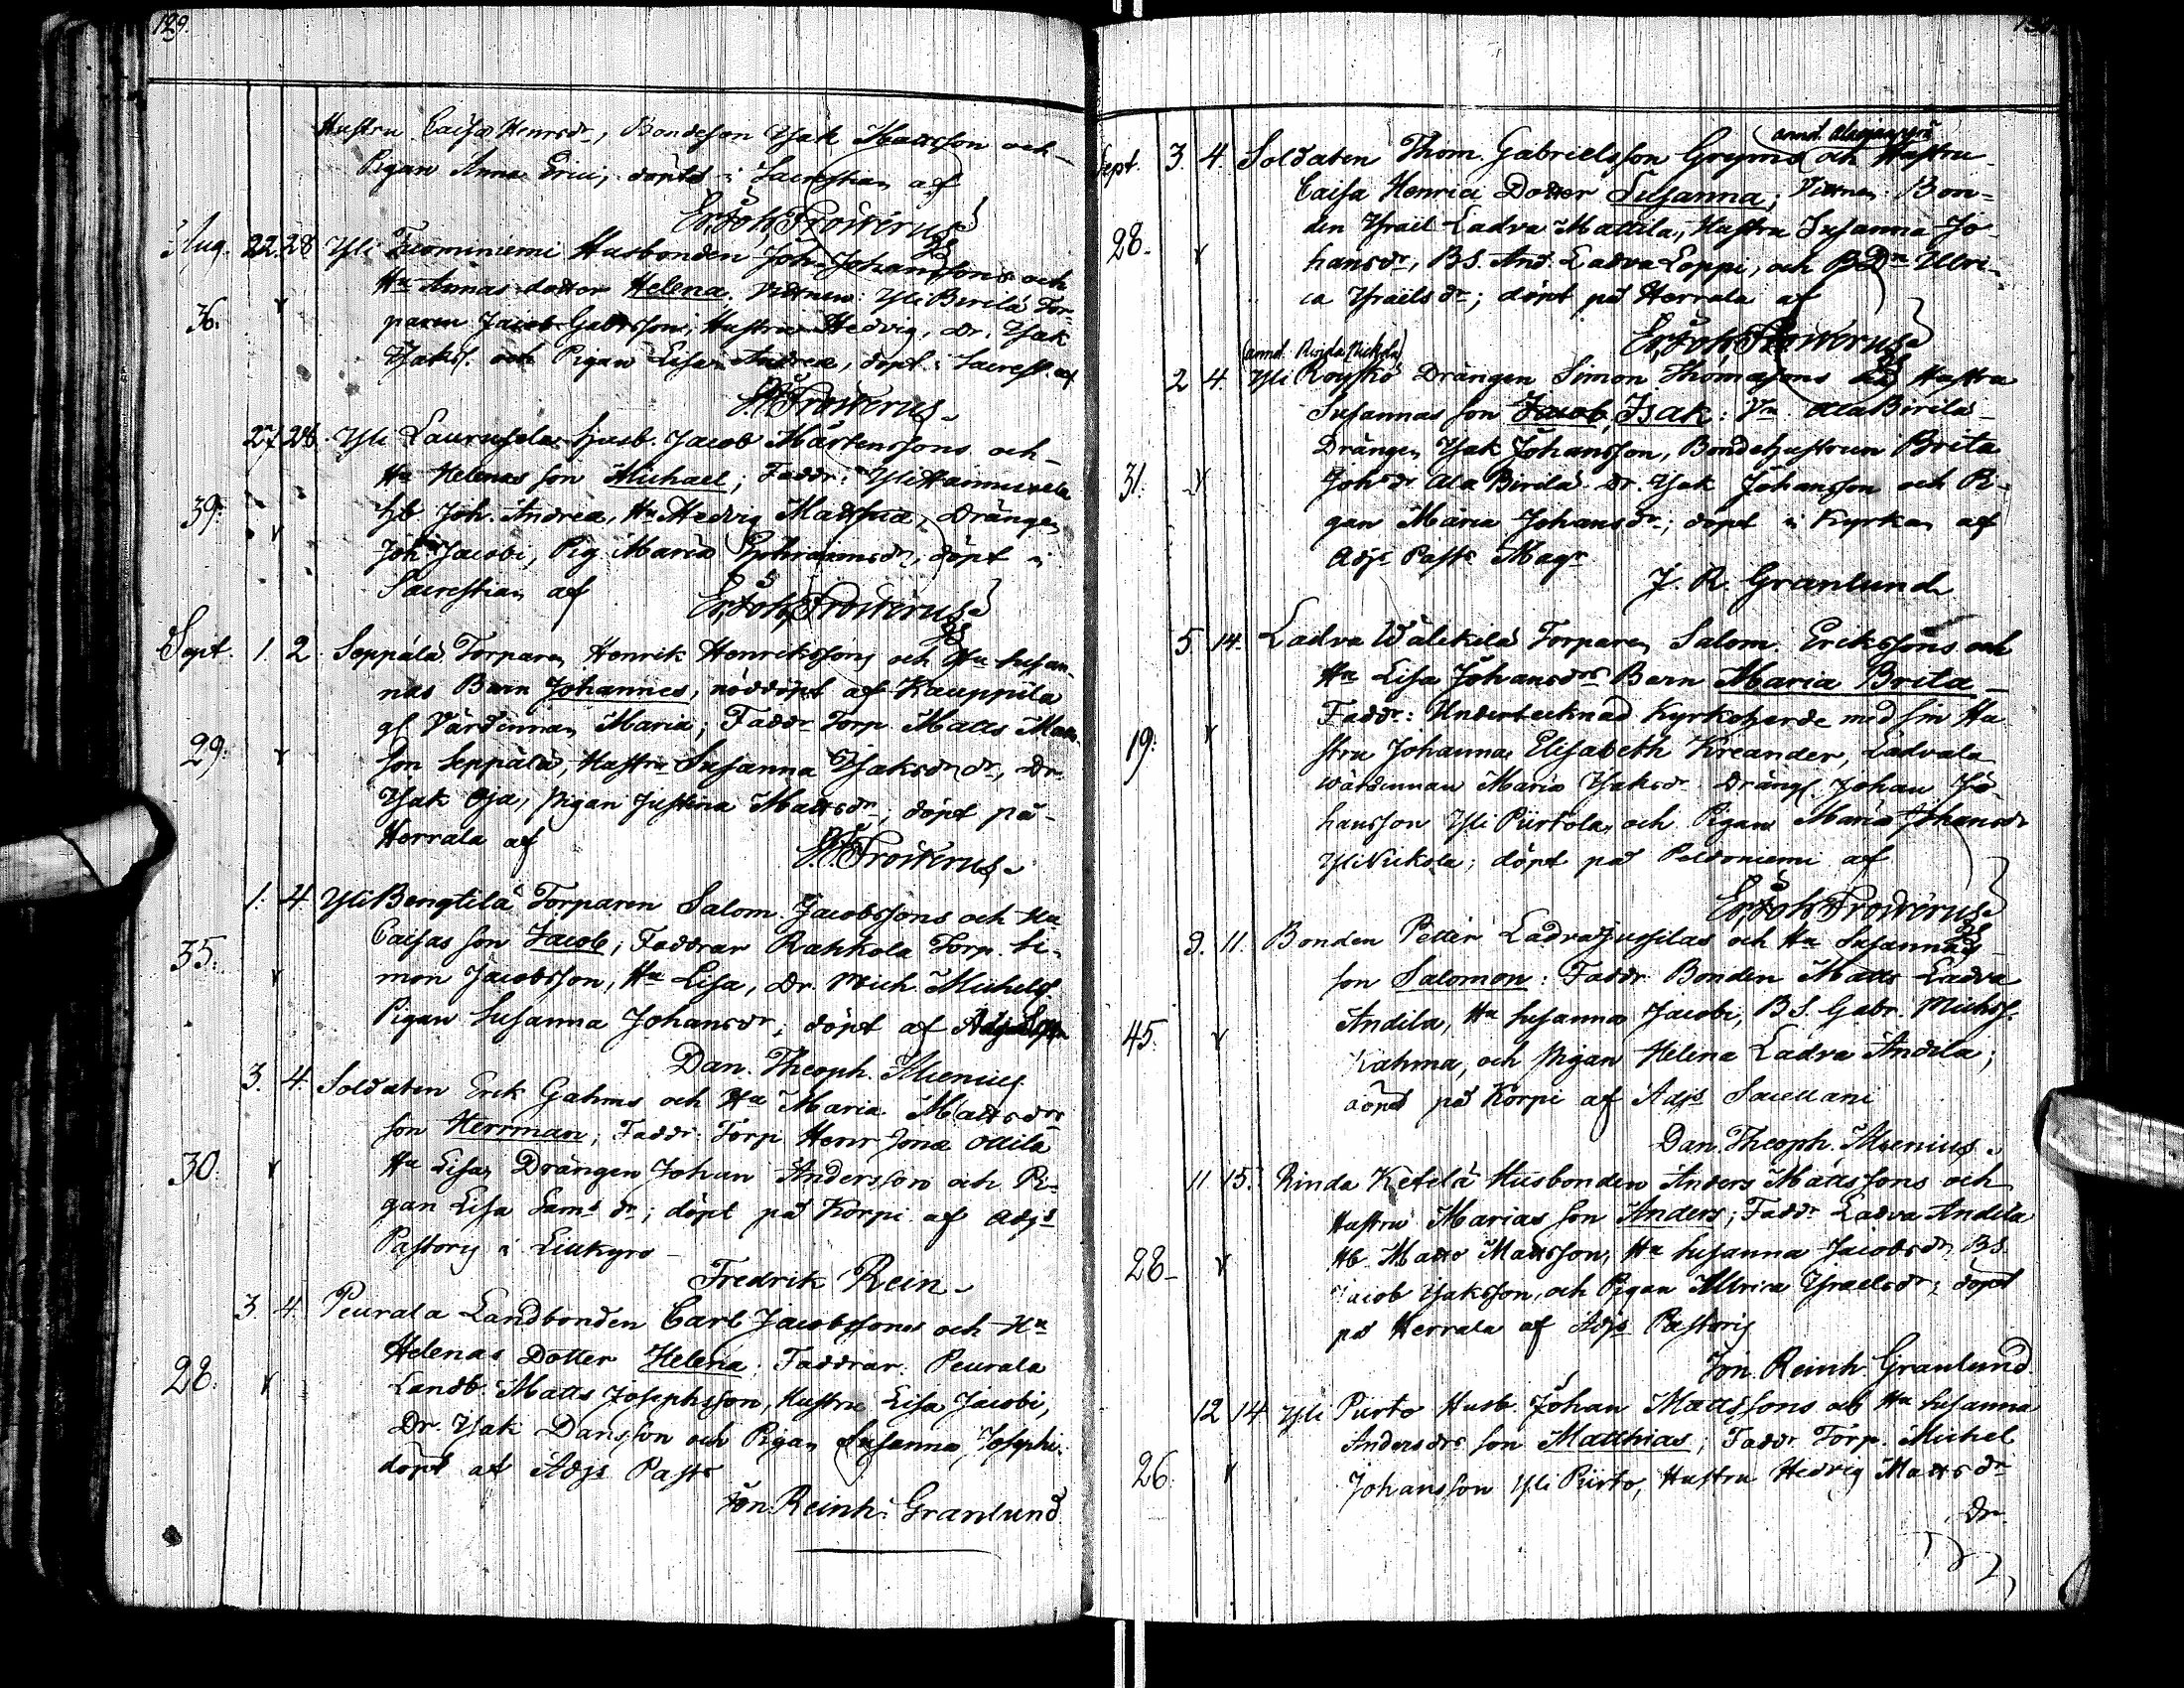 129.
Hustru Caisa Henrsdr, Bondeson Isak Mattsson och
Pigan Anna Erici, döptes i Sacrestian af
Er. Joh. Frosterus
Aug. 22. 28 Yli Tuominiemi Husbonden Joh. Johanssons och
Hu Annas dotter Helena. Vittnen: Yli Birilä Tor-
36. paren Jacob Gabrsson, Hustru Hedvig, Dr. Isak
Isaks. och Pigan Lisa Andreæ, döpt i Sacrest. af
Frosterus
27. 28. Yli Laurusela Husb. Jacob Mårtenssons och
Hu Helenas son Michael; Faddr: Yli Hannuxela
39. hb Joh. Andreæ, Hu Hedvig Matthiæ, Drängen
Joh Jacobi, Pig Maria Ephraimsdr, döpt i
Sacrestian af Er. Joh. Frosterus
Sept. 1. 2. Seppälä Torparen Henrik Henrikssons och Hu Susan-
nas Barn Johannes, nöddöpt af Kauppila
gl Värdinnan Maria; Faddr Torp. Matts Matts-
29. son Seppälä, Hustru Susanna Isaksdr, Dr.
Isak Oja, pigan Justina Mattsdr; döpt på
Herrala af Frosterus
1. 4 Yli Bengtilä Torparen Salom. Jacobssons och Hu
35. Caisas son Jacob; Faddrar Rahkola Torp. Si-
mon Jacobsson, Hu Lisa, Dr. Mich. Michels.
Pigan Susanna Johansdr; döpt af
Dan. Theoph. Muenius
3. 4. Soldaten Erik Gahms och Hu Maria Mattsdrs
son Herrman; Faddr: Torp Henr Jona Ollila
30. Hu Lisa, Drängen Johan Andersson och Pi-
gan Lisa Sams dr; döpt på Korpi af Adjs
Pastoris i Lillkyro
Fredrik Rein
3. 4. Peurala Landbonden Carl Jacobssons och Hu
Helenas Dotter Helena; Faddrar: Peurala
28. Landb. Matts Josephsson, Hustru Lisa Jacobi,
Dr. Isak Dansson och Pigan Susanna Josephi,
döpt af Adjs Pasts
Jon. Reinh. Granlund
Sept. 3. 4. Soldaten Thom. Gabrielsson Gryms och Hustru
Caisa Henrici Dotter Susanna; Vittnen: Bon-
28. den Israel Ladva Mattila, Hustru Susanna Jo-
hansdr, BS. And. Ladva Loppi, och BDn Ulri-
ca Israelsdr; döpt på Herrala af
Er. Joh. Frosterus
(annd. Rinda Nickola)
2 4. Yli Röyskö Drängen Simon Thomasons och Hustru
Susannas son Jacob, Isak: Vn Ala Birilä
Drängen Isak Johansson, Bondehustrun Brita
31. Johsdr Ala Birilä Dr. Isak Johansson och Pi-
gan Maria Johansdr; döpt i Kyrkan af
Adjs Pasts Magr
J. R. Granlund
5. 14. Ladva Wälikilä Torparen Salom. Erikssons och
Hu Lisa Johansdrs Barn Maria Brita
Faddr: Undertecknad Kyrkoherde med sin Hu
19. stru Johanna Elisabeth Kreander, Ladvala
Värdinnan Maria Isaksdr. Drängs Johan Jo-
hansson Yli Purtola, och Pigan Maria Johansdr
Yli Nickola; döpt på Peldoniemi af
Er. Joh. Frosterus
9. 11. Bonden Petter Ladva Jussilas och Hu Susannas
son Salomon: Faddr Bonden Matts Ladva
Andila, Hu Susanna Jacobi, BS. Gabr. Michss.
45. Kahma, och pigan Helena Ladva Andila;
döpt på Korpi af Adjs Sacellani
Dan. Theoph. Muenius
11 15. Rinda Ketelä Husbonden Anders Mattssons och
Hustru Marias son Anders; Faddr Ladva Andila
28 Hb Matts Mattsson, Hu Susanna Jacobsdr, BS.
Jacob Isaksson, och Pigan Ulrica Israelsdr; döpt
på Herrala af Adjs Pastoris
Jon. Reinh. Granlund.
12 14 Yli Purto Husb. Johan Mattssons och Hu Susanna
Andersdrs son Matthias; Faddr Torp. Michel
26. Johansson Yli Purto, Hustru Hedvig Mattsdr
Dr.